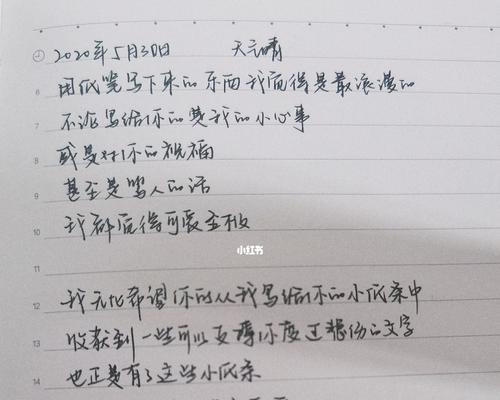 2020年5月30日 天气晴
6 用纸笔写下来的东西我觉得是最浪漫的
7 不论写给你的是我的小心事
8 或是对你的祝福
9 甚至是骂人的话
10 我都觉得可爱至极
小红书
11
12 我无比希望你从我写给你的小纸条中
13 收获到一些可以支撑你度过的文字
14 也正是有了这些小纸条